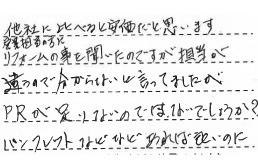 他社に比べると安価だと思います
営業担当の方に
リフォームの事を聞いたのですが担当が
違うので分からないと言ってましたが
PRが足りないのではないでしょうか?
パンフレットなどなどあれば良いのに